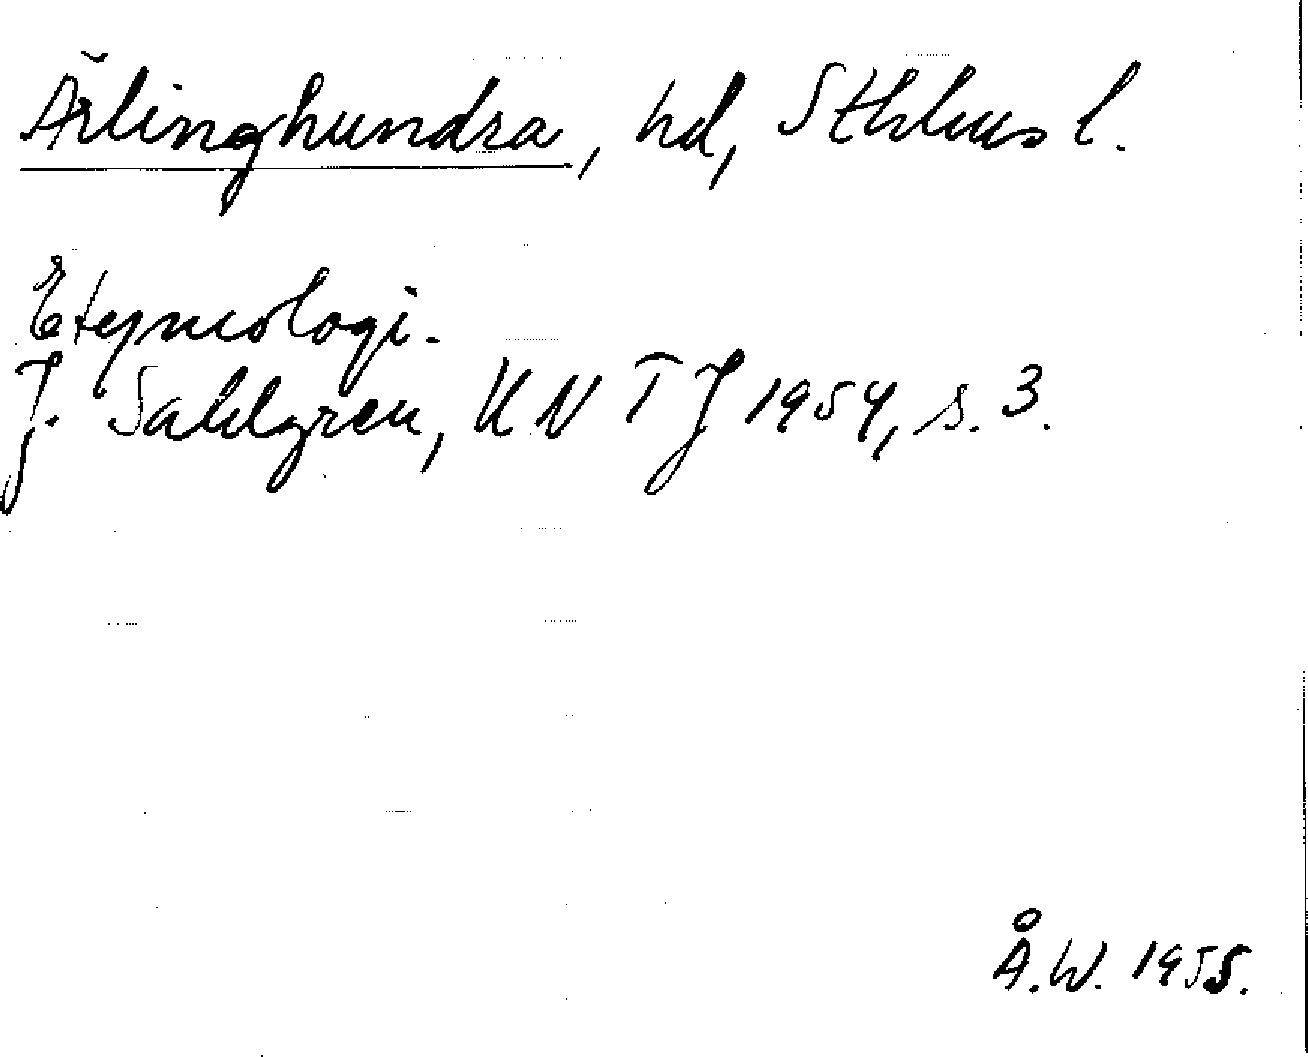 Ärlinghundra, hd, Sthlms l.
Etymologi.
J. Sahlgren, KNTJ 1954, s. 3.
Å.W. 1955.